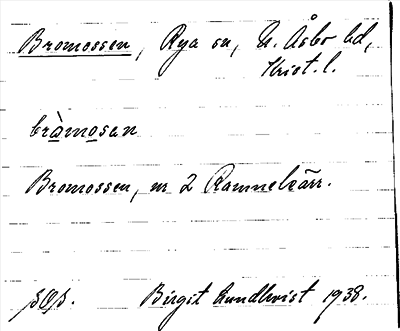 Bromossen, Rya sn, N. Åsbo hd,
Krist. l.
bràmosan
Bromossen, nr 2 Ramnekärr.
Birgit Lundkvist 1938.